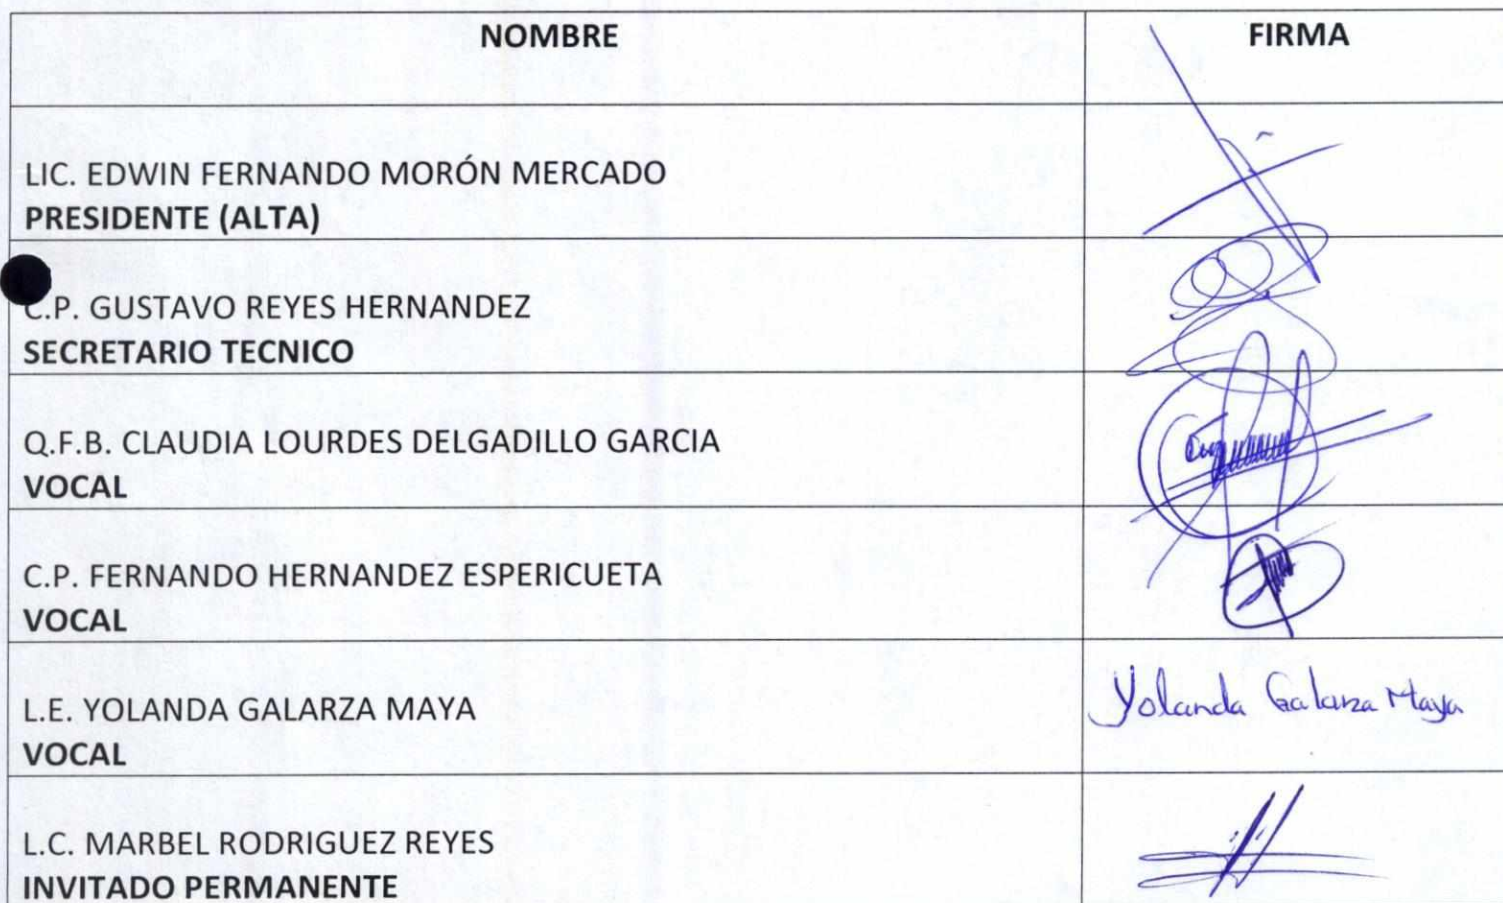 NOMBRE FIRMA
LIC. EDWIN FERNANDO MORÓN MERCADO
PRESIDENTE (ALTA)
C.P. GUSTAVO REYES HERNANDEZ
SECRETARIO TECNICO
Q.F.B. CLAUDIA LOURDES DELGADILLO GARCIA
VOCAL
C.P. FERNANDO HERNANDEZ ESPERICUETA
VOCAL
L.E. YOLANDA GALARZA MAYA Yolanda Galarza Maya
VOCAL
L.C. MARBEL RODRIGUEZ REYES
INVITADO PERMANENTE